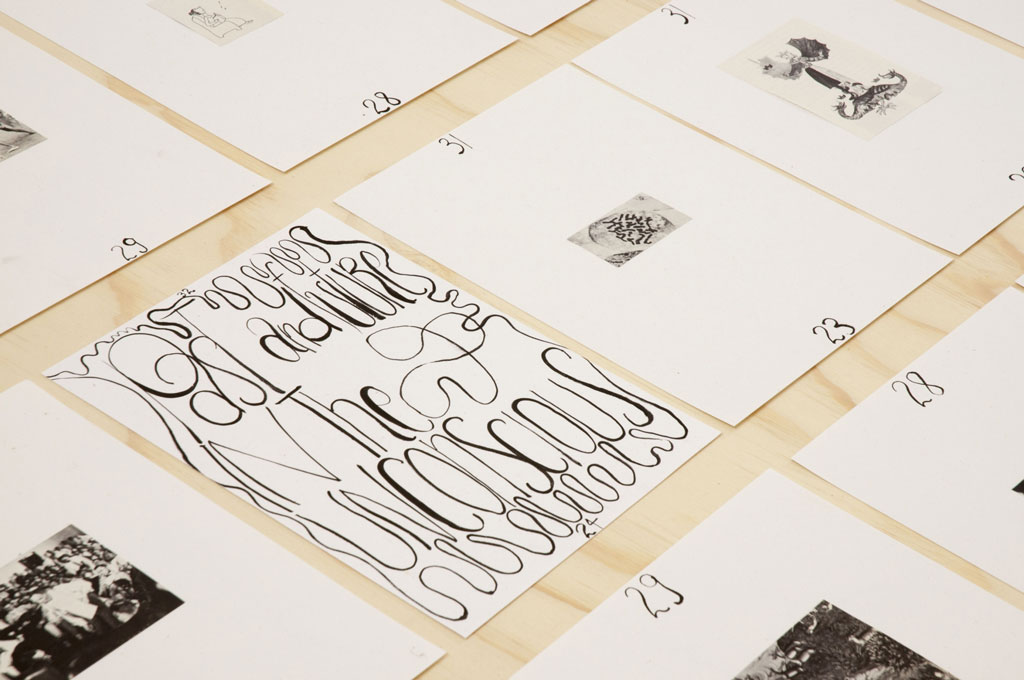 31
28
31
29
23
28
Past
and FUTURE
The
UNCONSCIOUS
24
29